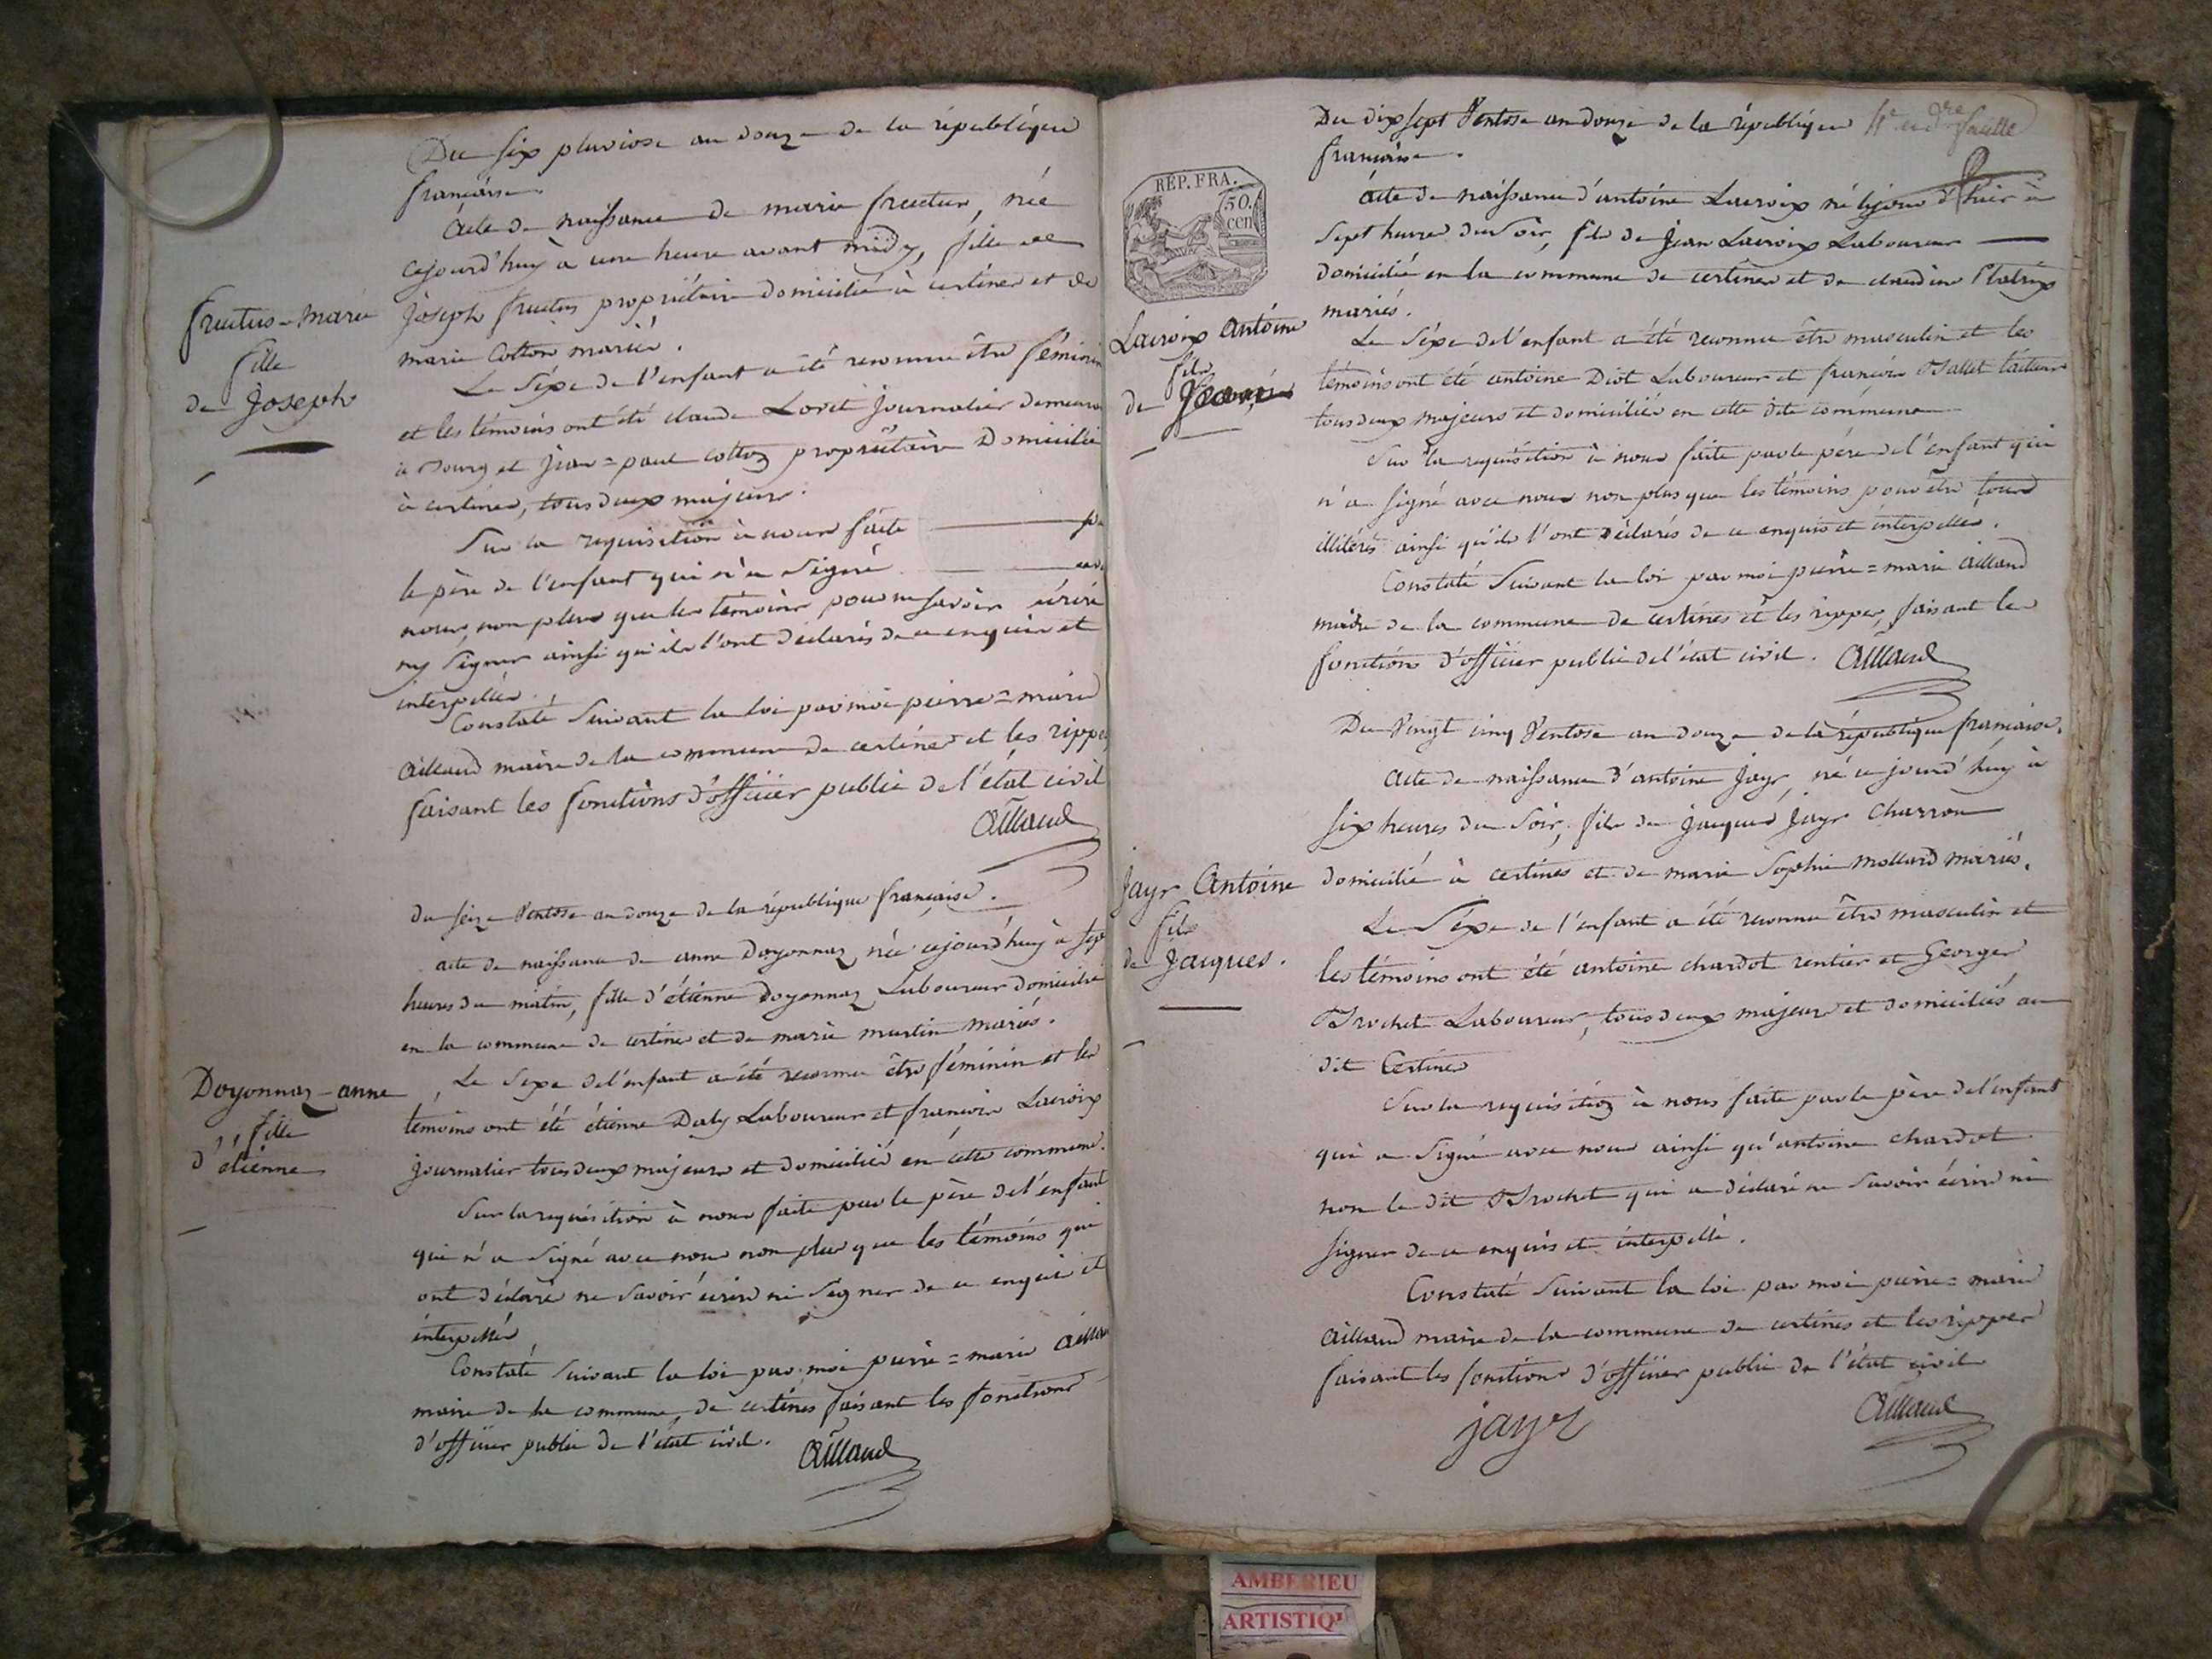 Du six pluviose an douze de la république
française.
Acte de naissance de marie fructus, née
cejourd'huy à une heure avant midy, fille de
Joseph fructus propriétaire domicilié à certines et de
marie Cotton mariés.
fructus-marie
fille
de Joseph
Le Séxe de l'enfant a été reconnu être féminin
et les témoins ont été claude Loret Journalier demeurant
à Bourg et Jean=paul cotton propriétaire Domicilié
à certines, tous deux majeurs.
Sur la requisition à nous faite par
le père de l'enfant qui n'a Signé avec
nous, non plus que les témoins pour ne savoir écrire
ny Signer ainsi qu'ils l'ont déclarés de ce enquis et
interpellés.
Constaté Suivant la loi par moi pierre=marie
aillaud maire de la commune de certines et les rippes
faisant les fonctions d'officier public de l'état civil
Aillaud
Du seize Ventose an douze de la république française.
acte de naissance de anne Doyonnaz, née cejourd'huy à sept
heures du matin, fille d'étienne Doyonnaz Laboureur domicilié
en la commune de certines et de marie martin mariés.
Doyonnaz-anne
fille
d'étienne
Le Sexe de l'enfant a été reconnu être féminin et les
témoins ont été étienne Daly Laboureur et françois Lacroix
journalier tous deux majeurs et domiciliés en cette commune.
Sur la requisition à nous faite par le père de l'enfant
qui n'a Signé avec nous non plus que les témoins qui
ont déclaré ne Savoir écrire ni Signer de ce enquis et
interpellés
Constaté Suivant la loi par moi pierre=marie Aillaud
maire de la commune de certines faisant les fonctions
d'officier public de l'état civil.
Aillaud
Du dix sept Ventose an douze de la république
française.
REP. FRA.
50.
cen
acte de naissance d'antoine Lacroix né le jour d'hier à
Sept heures du Soir, fils de Jean Lacroix Laboureur
domicilié en la commune de certines et de claudine Platrix
mariés.
Lacroix Antoine
fils
de Jean
Le Séxe de l'enfant a été reconnu être masculin et les
témoins ont été antoine Diot Laboureur et françois
tous deux majeurs et domiciliés en cette dite commune
Sur la requisition à nous faite par le père de l'enfant qui
n'a Signé avec nous non plus que les témoins pour être tous
illitérés ainsi qu'ils l'ont Déclarés de ce enquis et interpellés.
Constaté Suivant la loi par moi pierre=marie aillaud
maire de la commune de certines et les rippes, faisant les
fonctions d'officier public de l'état civil.
Aillaud
Du Vingt cinq Ventose an douze de la république française.
acte de naissance d'antoine Jayr, né ce jourd'huy à
Six heures du Soir, fils de Jacques Jayr Charron
domicilié à certines et de marie Sophie Mollard mariés.
Jayr Antoine
fils
de Jacques.
Le Séxe de l'enfant a été reconnu être masculin et
les témoins ont été antoine chardot rentier et Georges
Brochet Laboureur, tous deux majeurs et domiciliés au
dit Certines
Sur la requisition à nous faite par le père de l'enfant
qui a Signé avec nous ainsi qu'antoine chardot
non le dit Brochet qui a déclaré ne Savoir écrire ni
Signer de ce enquis et interpellé.
Constaté Suivant la loi par moi pierre=marie
Aillaud maire de la commune de certines et les rippes
faisant les fonctions d'officier public de l'état civil
jayr
Aillaud
AMBERIEU
ARTISTIQ